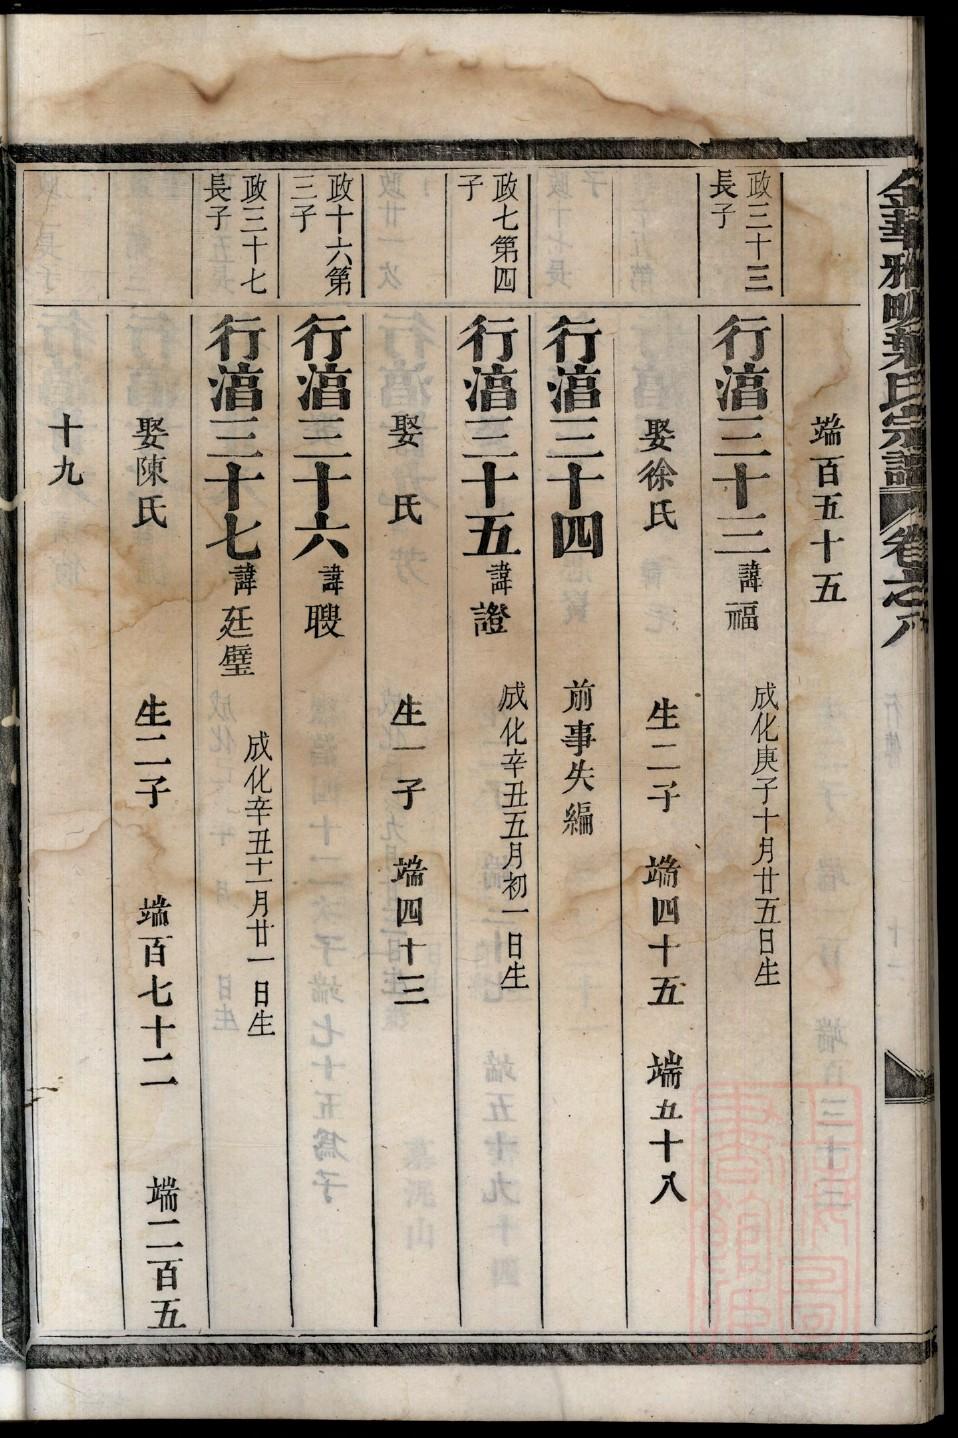 金華雅畈葉氏宗譜 卷之八
端百五十五
政三十三長子
行湻三十三 諱福 成化庚子十月廿五日生
娶徐氏 生二子 端四十五 端五十八
行湻三十四 前事失編
政七第四子
行湻三十五 諱證 成化辛丑五月初一日生
娶 氏 生一子 端四十三
政十六第三子
行湻三十六 諱聰
政三十七長子
行湻三十七 諱廷璧 成化辛丑十一月廿一日生
娶陳氏 生二子 端百七十二 端二百五
十九